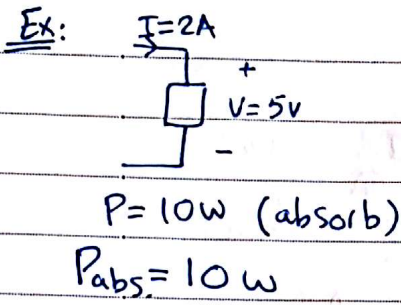 Ex:
I=2A
+
V=5v
-
P=10w (absorb)
Pabs.=10w